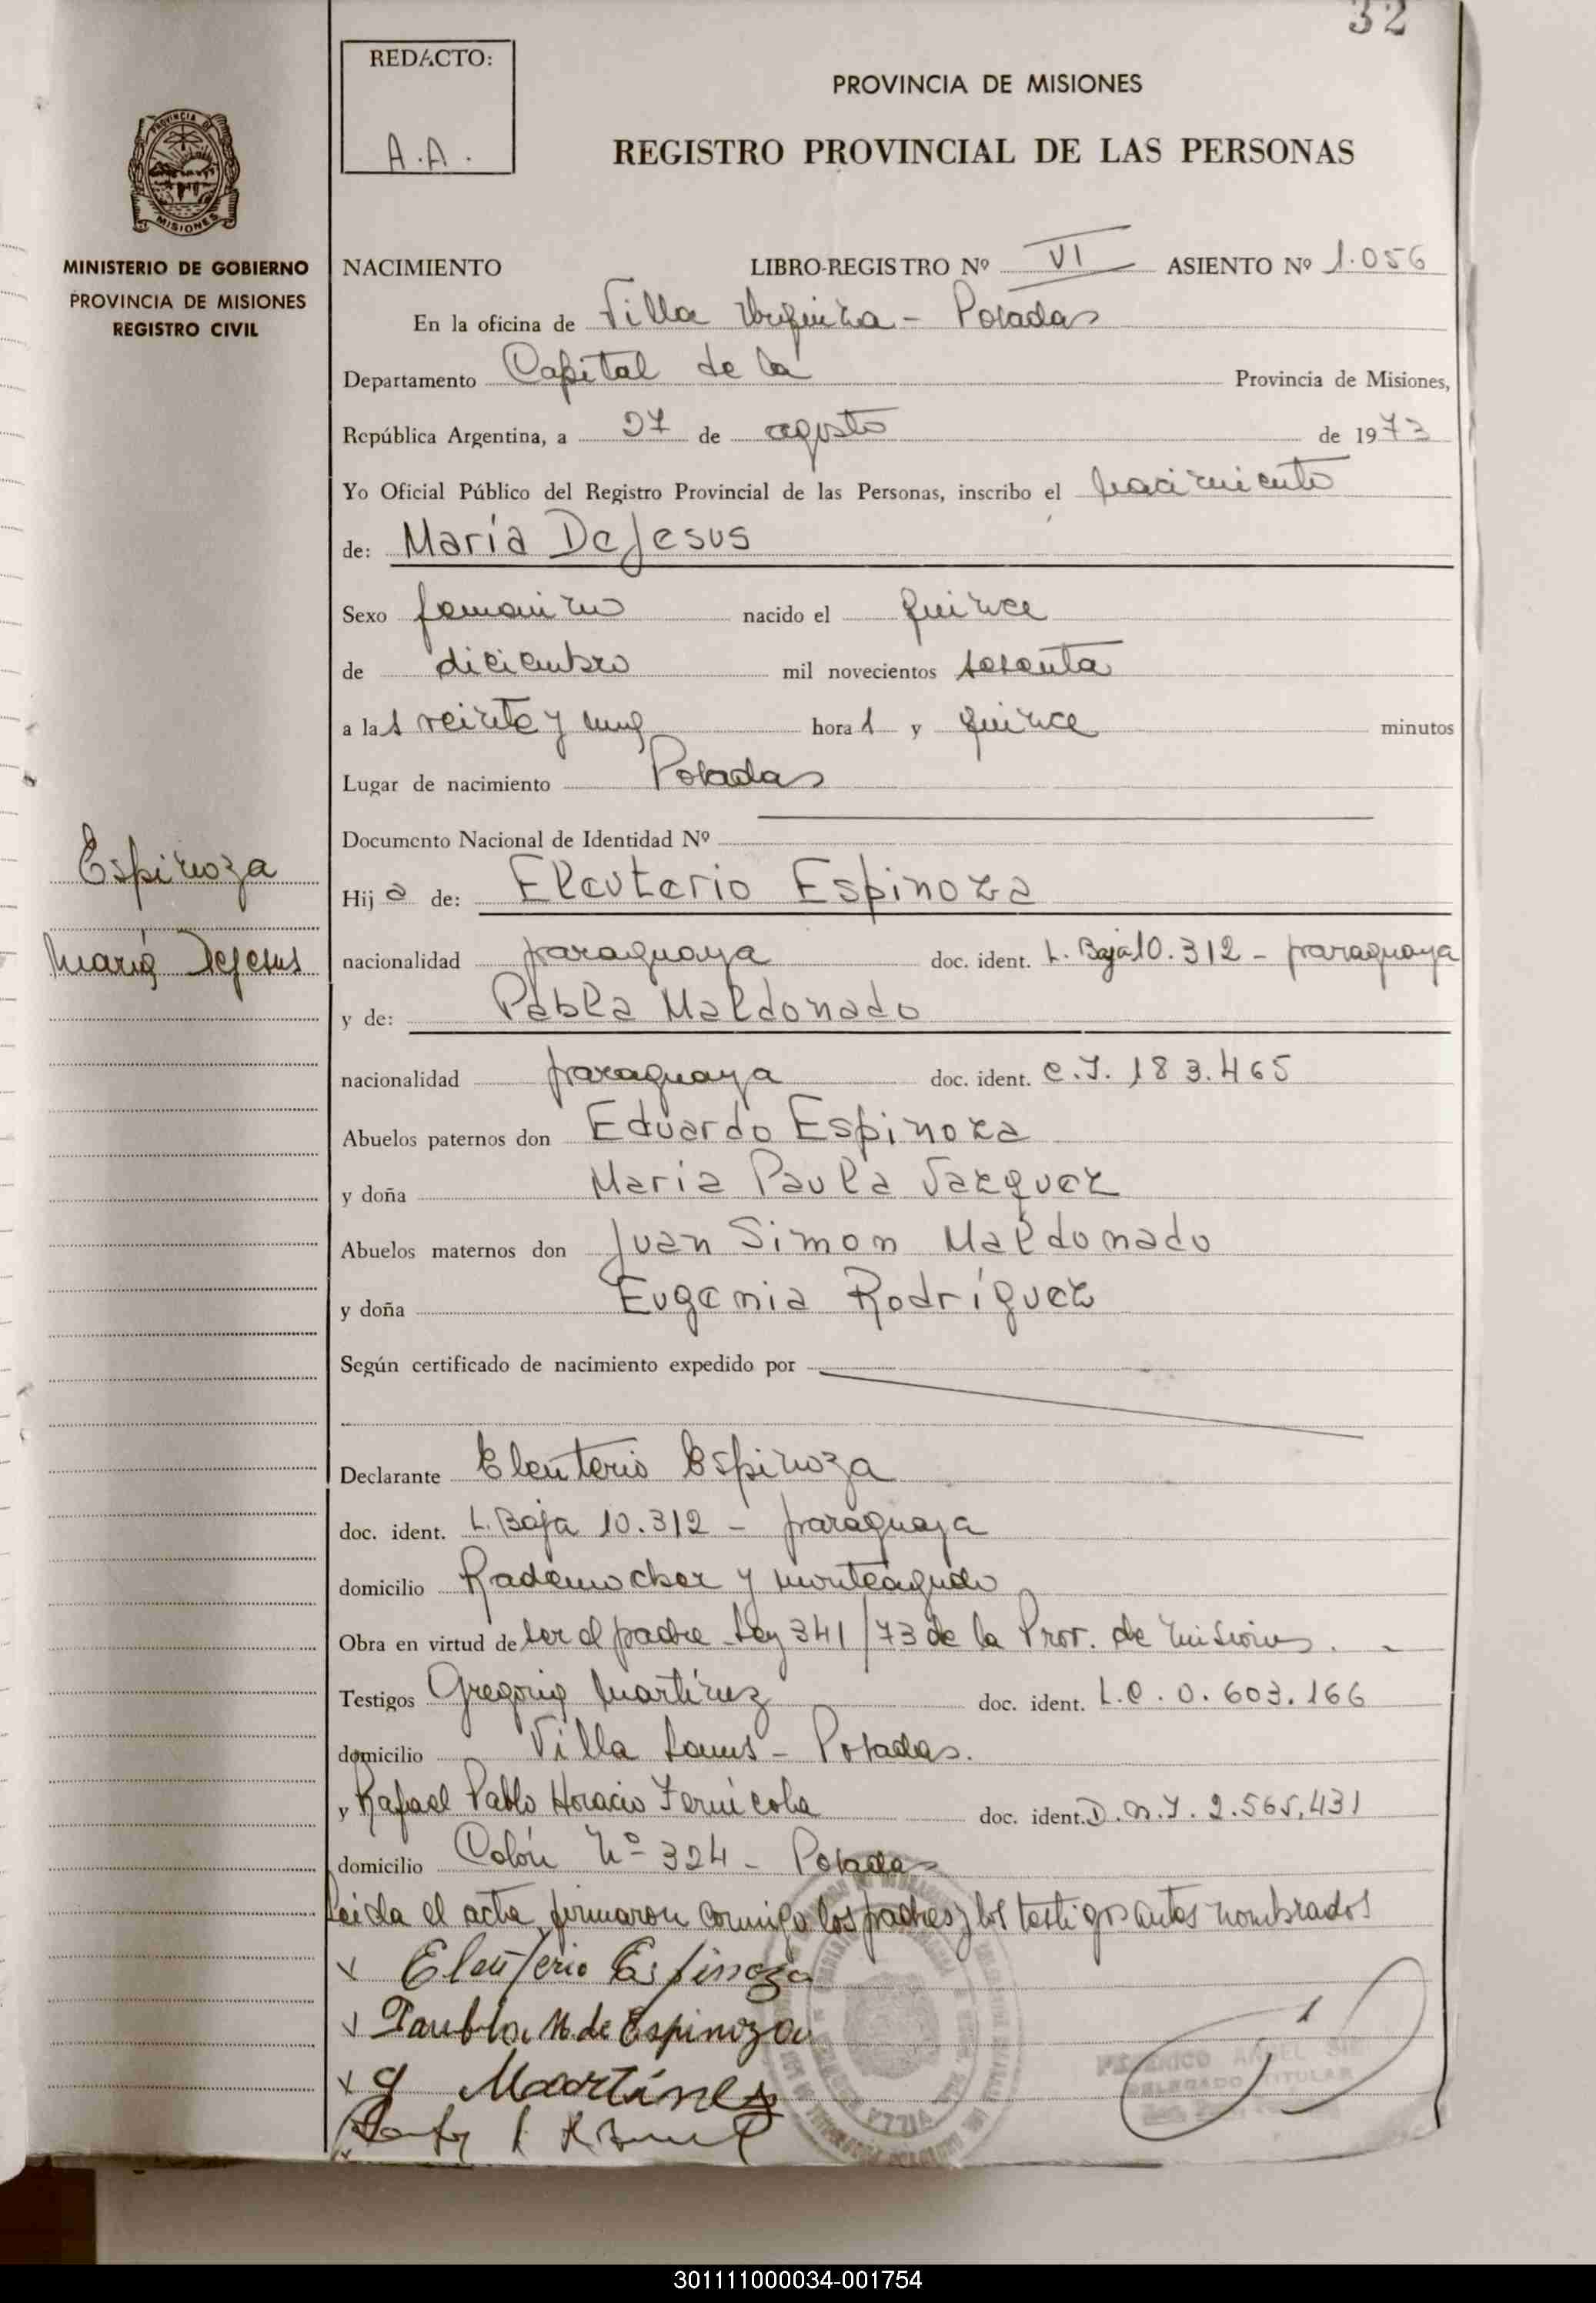 32
REDACTO:
A.A.
PROVINCIA DE MISIONES
REGISTRO PROVINCIAL DE LAS PERSONAS
MINISTERIO DE GOBIERNO
PROVINCIA DE MISIONES
REGISTRO CIVIL
NACIMIENTO LIBRO-REGISTRO Nº VI ASIENTO Nº 1.056
En la oficina de Villa Urquiza - Posadas
Departamento Capital de la Provincia de Misiones,
República Argentina, a 27 de agosto de 1973
Yo Oficial Público del Registro Provincial de las Personas, inscribo el nacimiento
de: María DeJesus
Sexo femenino nacido el quince
de diciembre mil novecientos sesenta
a las veinte y una horas y quince minutos
Lugar de nacimiento Posadas
Documento Nacional de Identidad Nº
Espinoza
María DeJesus
Hija de: Eleuterio Espinoza
nacionalidad paraguaya doc. ident. L. Baja 10.312 - paraguaya
y de: Pabla Maldonado
nacionalidad paraguaya doc. ident. C.I. 183.465
Abuelos paternos don Eduardo Espinoza
y doña Maria Paula Vazquez
Abuelos maternos don Juan Simon Maldonado
y doña Eugenia Rodríguez
Según certificado de nacimiento expedido por
Declarante Eleuterio Espinoza
doc. ident. L. Baja 10.312 - paraguaya
domicilio Rademacher y monteagudo
Obra en virtud de ser el padre Ley 341/73 de la Prov. de Misiones.
Testigos Gregorio Martínez doc. ident. L.E. 0.603.166
domicilio Villa Lanus - Posadas.
y Rafael Pablo Horacio Fernicola doc. ident. D.N.I. 2.565.431
domicilio Colón Nº 324 - Posadas
Leida el acta firmaron conmigo los padres y los testigos antes nombrados
Eleuterio Espinoza
Paubla M. de Espinoza
G Martines
ANGEL
DELEGADO TITULAR
301111000034-001754